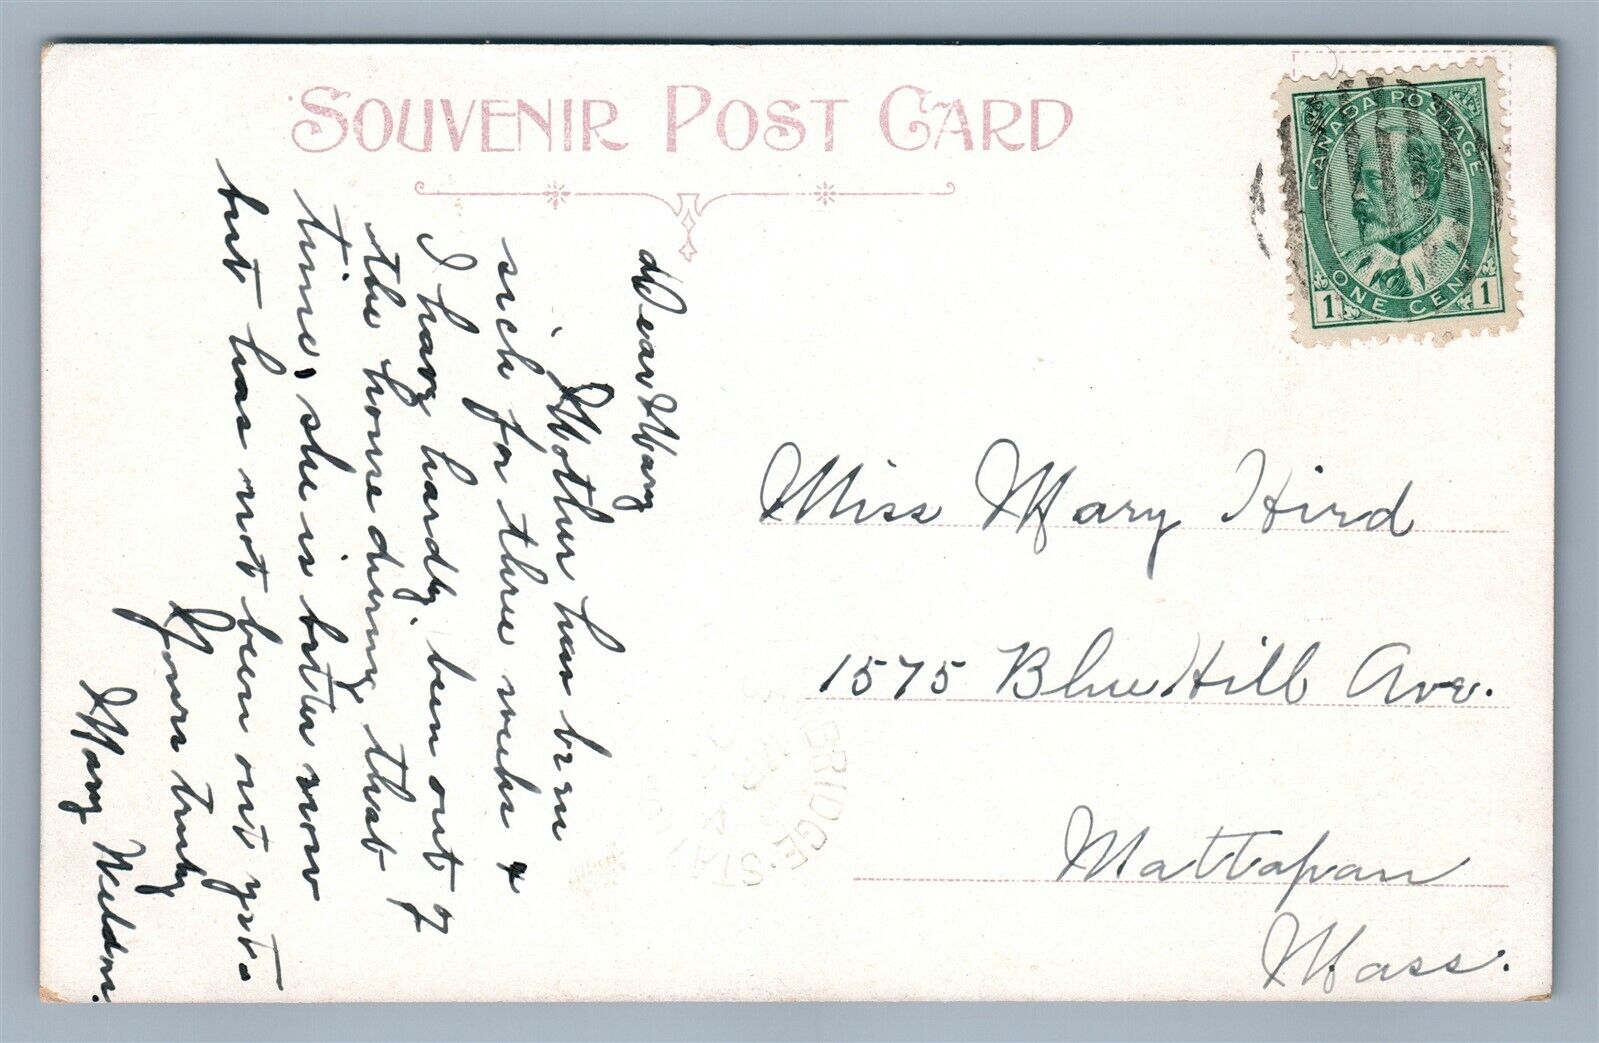 SOUVENIR POST CARD
CANADA POSTAGE
1 ONE CENT 1
Dear Mary
Mother has been
sick for three weeks &
I have hardly been out of
the house during that
time, she is better now
but has not been out yet.
Yours truly
Mary Weldon.
Miss Mary Hird
1575 Blue Hill Ave.
Mattapan
Mass.
BRIDGE·STA